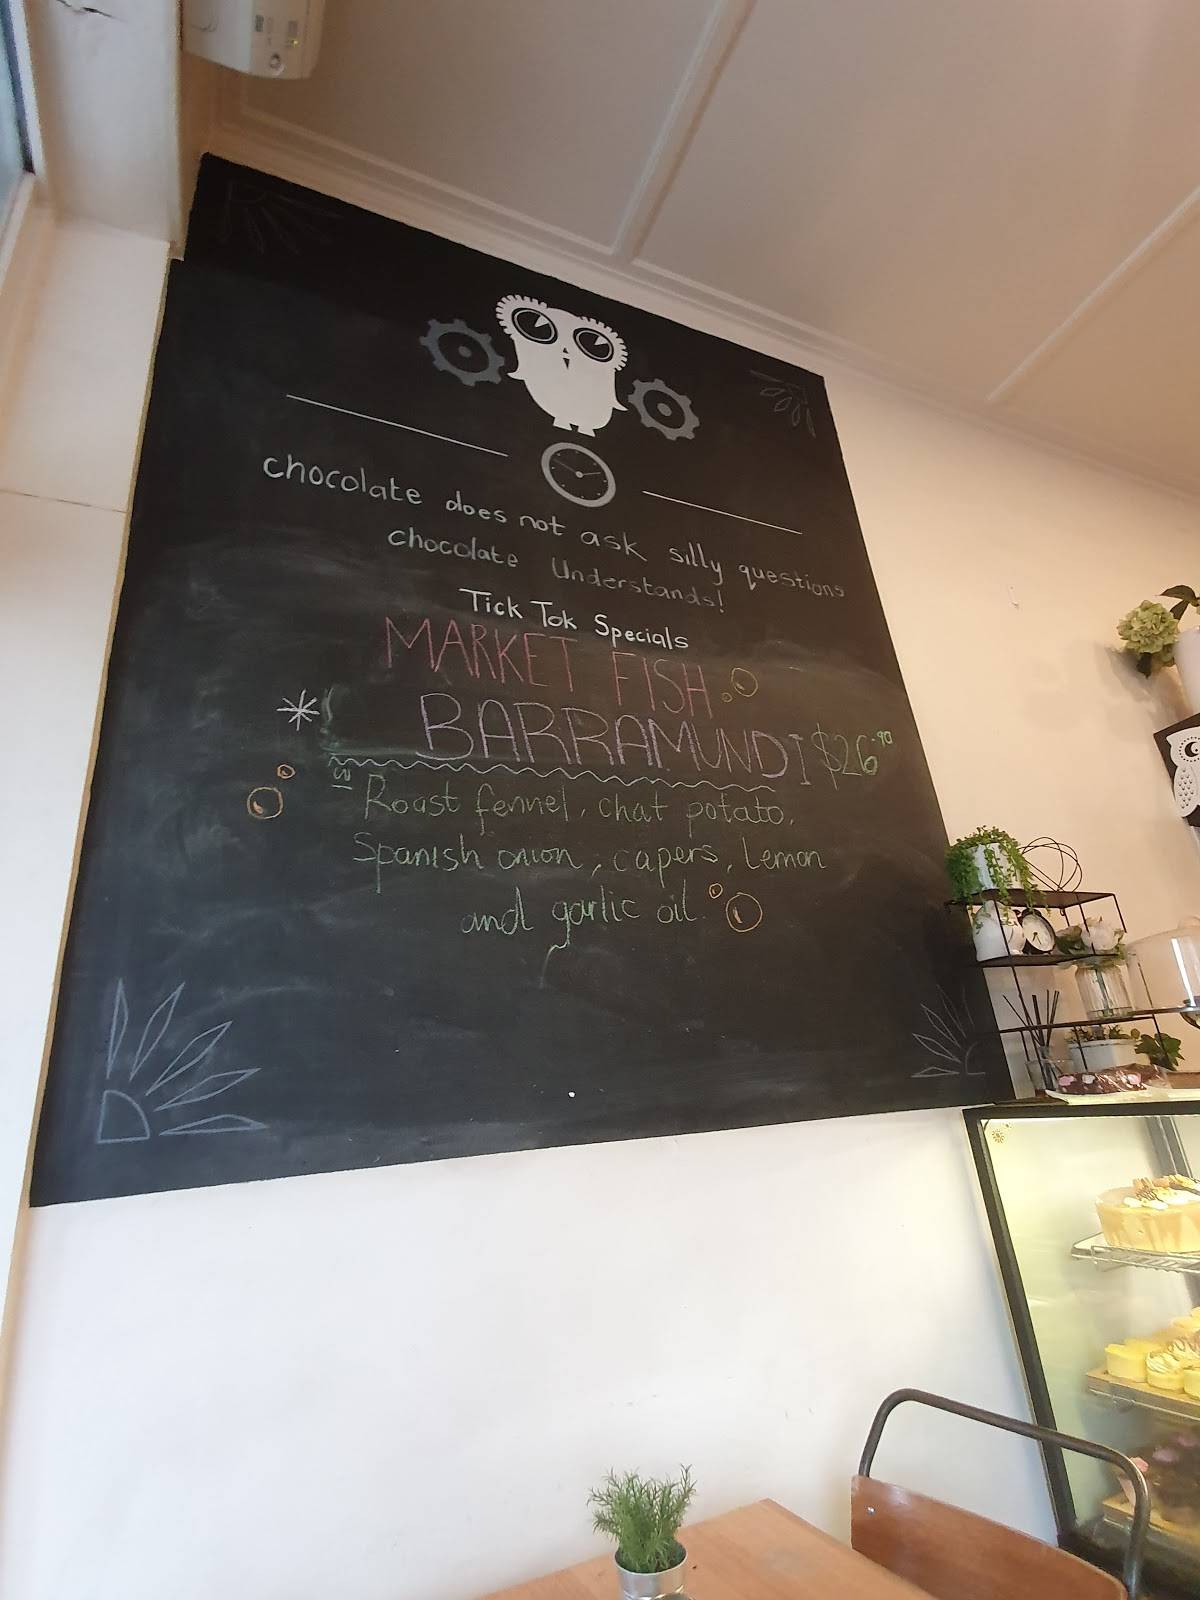 chocolate does not ask silly questions
chocolate Understands!
Tick Tok Specials
MARKET FISH
BARRAMUNDI $26.90
Roast fennel, chat potato,
Spanish onion, capers, lemon
and garlic oil.